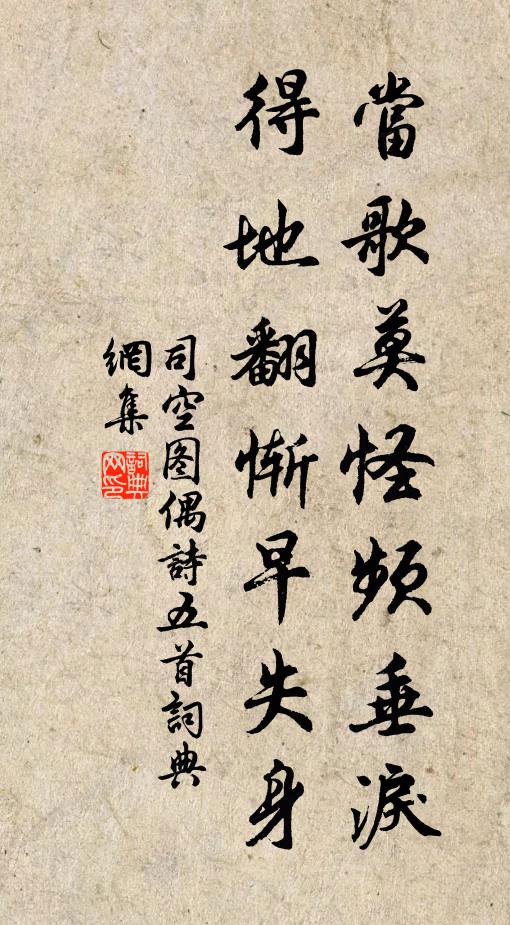 當歌莫怪頻垂淚
得地翻慚早失身
司空图偶詩五首詞典
網集
詞典网印